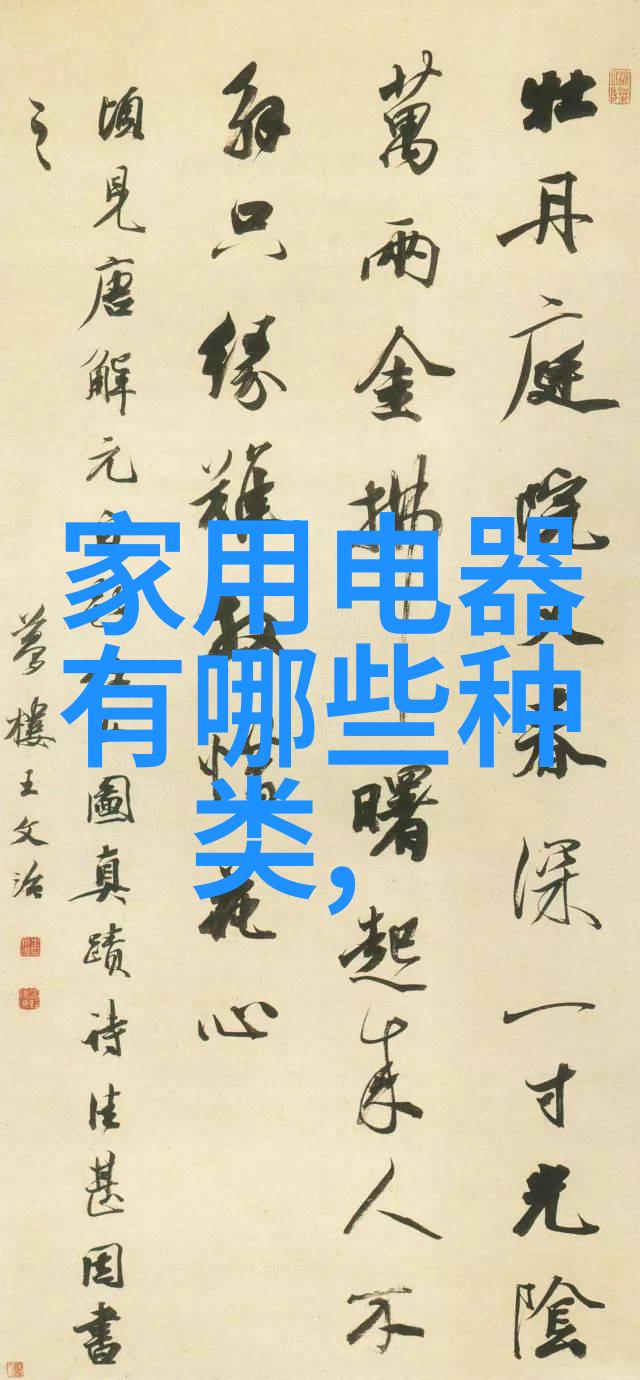 牡丹庭院又春深一寸光陰
萬兩金拂曙起來人不
解只緣難放惜花心
頃見唐解元
圖真蹟詩佳甚因書
之
夢樓王文治
家用电器
有哪些种
类,